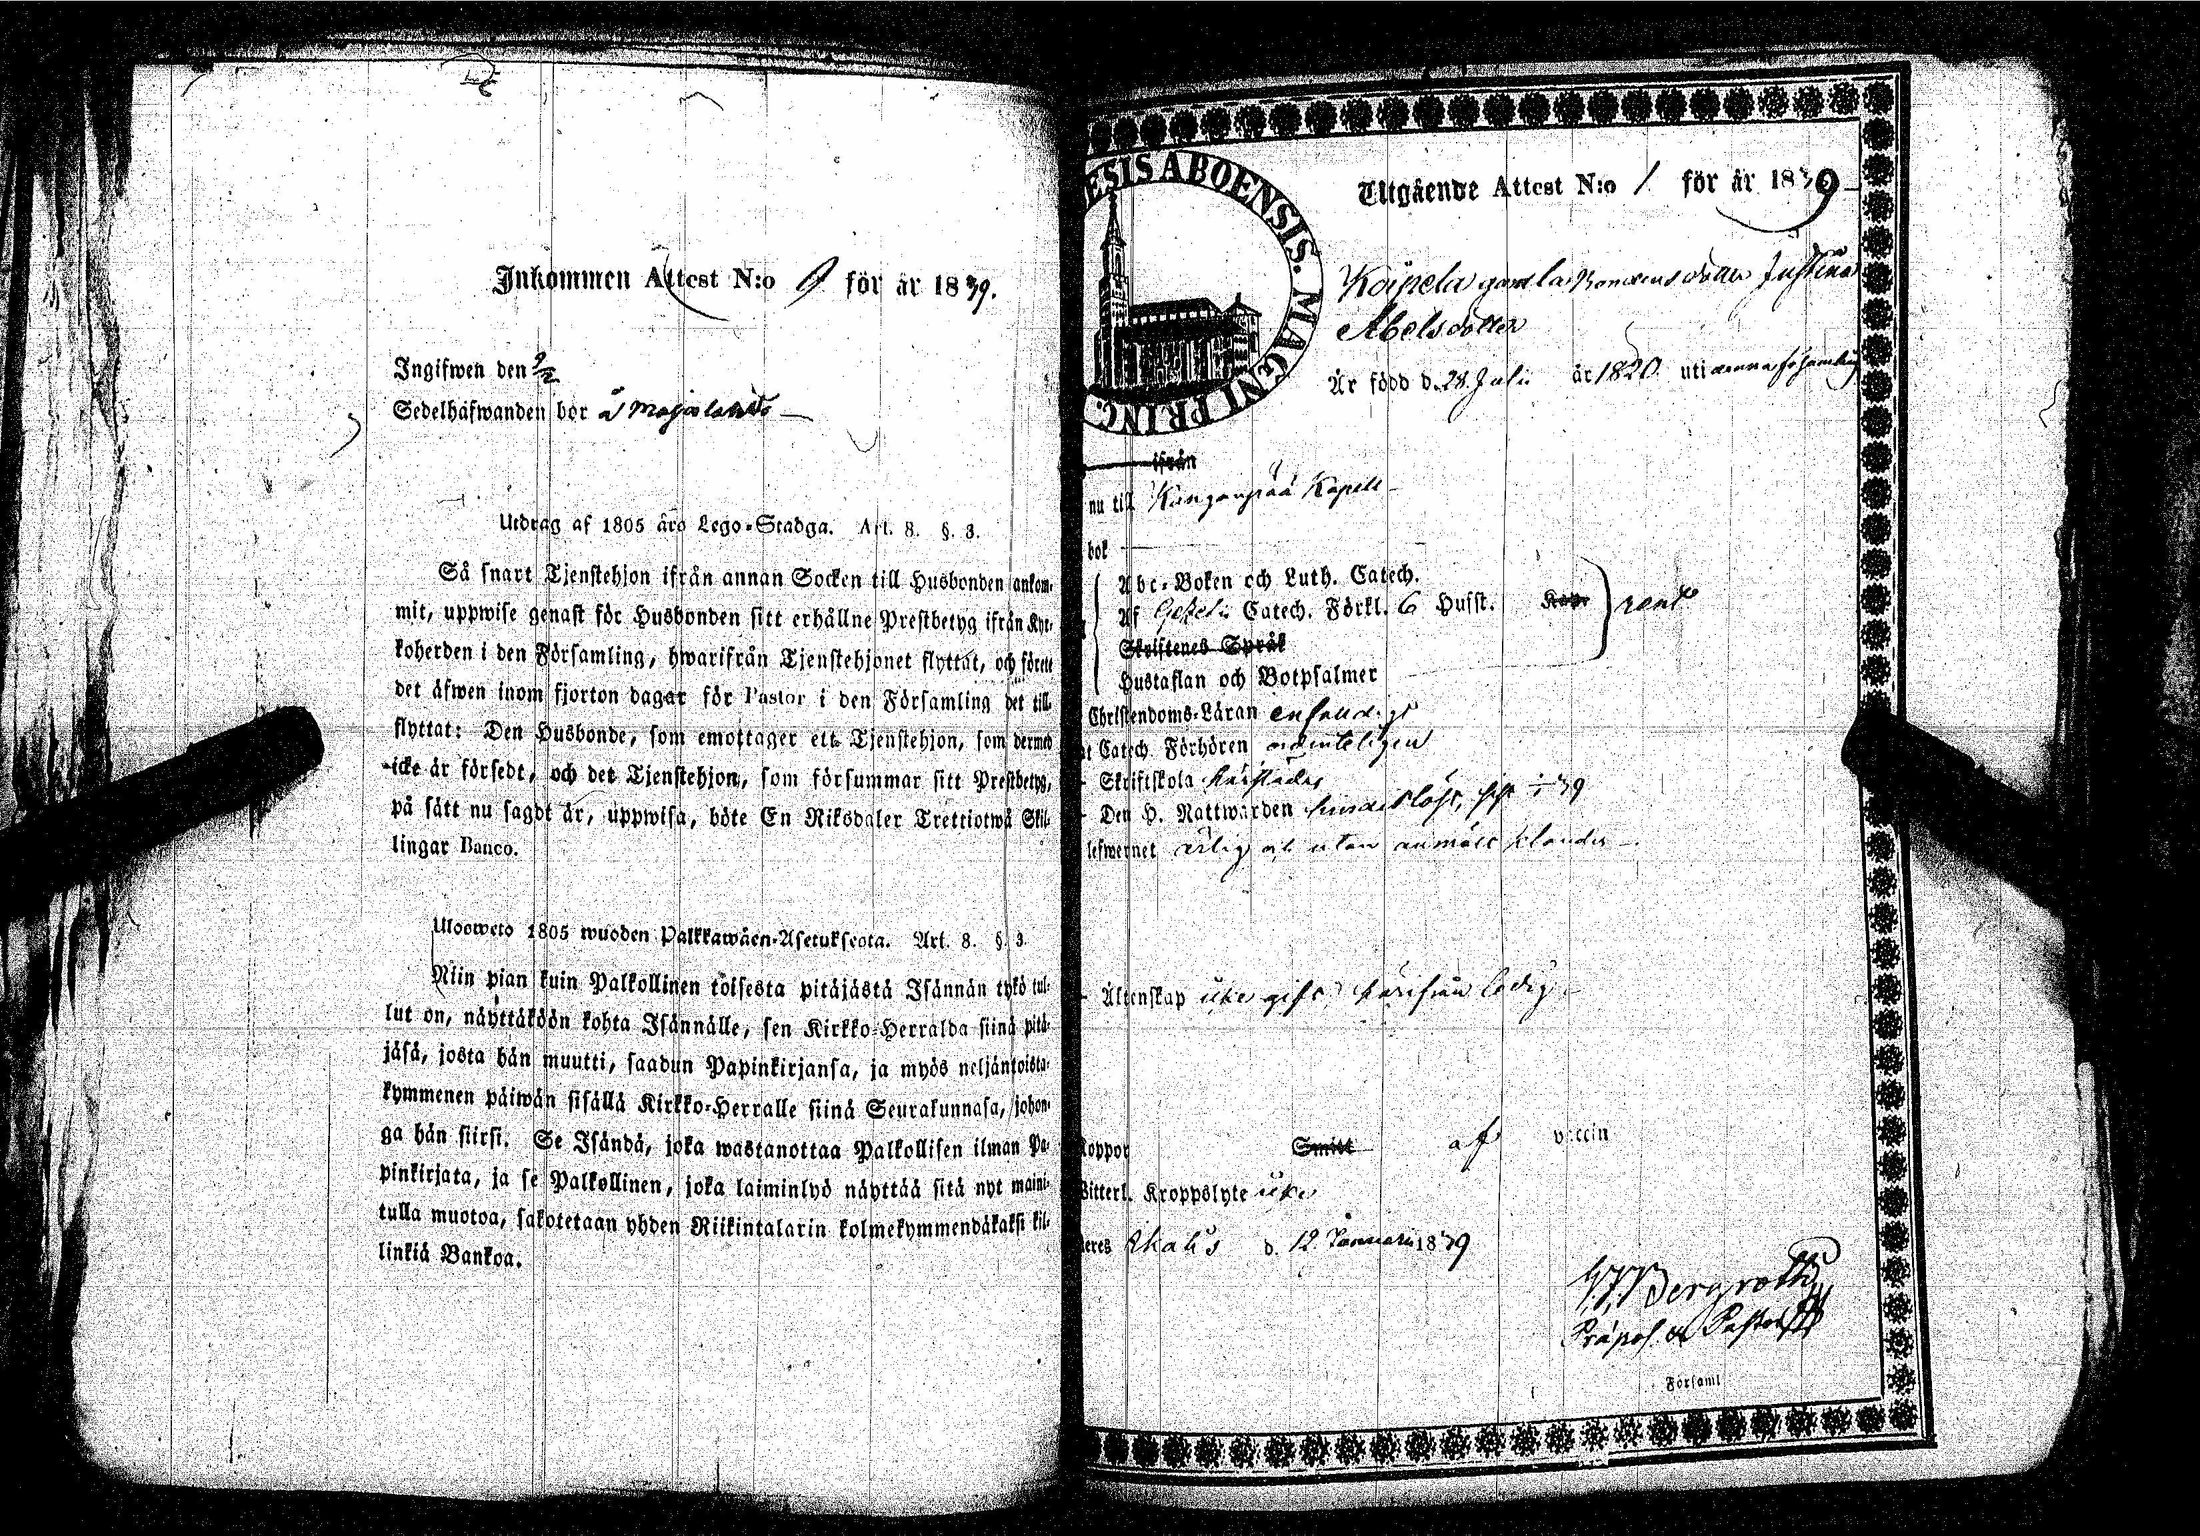 Inkommen Attest N:o 9 för år 1839.
Ingifwen den 9/2
Sedelhafwanden bor å
Utdrag af 1805 års Lego-Stadga. Art. 8. §. 3.
Så snart Tjenstehjon ifrån annan Socken till Husbonden ankom-
mit, uppwise genast för Husbonden sitt erhållne Prestbetyg ifrån Kyr-
koherden i den Församling, hwarifrån Tjenstehjonet flyttat, och förete
det äfwen inom fjorton dagar för Pastor i den Församling det till-
flyttat: Den Husbonde, som emottager ett Tjenstehjon, som dermed
icke är försedt, och det Tjenstehjon, som försummar sitt Prestbetyg,
på sätt nu sagdt är, uppwisa, böte En Riksdaler Trettiotwå Skil-
lingar Banco.
Ulosweto 1805 wuoden Palkkawäen-Asetuksesta. Art. 8. §. 3.
Niin pian kuin Palkollinen toisesta pitäjästä Isännän tykö tul-
lut on, näyttäköön kohta Isännälle, sen Kirkko-Herralda siinä pitä-
jäsä, josta hän muutti, saadun Papinkirjansa, ja myös neljäntoista-
kymmenen päiwän sisällä Kirkko-Herralle siinä Seurakunnasa, johon-
ga hän siirsi. Se Isändä, joka wastanottaa Palkollisen ilman Pa-
pinkirjata, ja se Palkollinen, joka laiminlyö näyttää sitä nyt maini-
tulla muotoa, sakotetaan yhden Riikintalarin kolmekymmendäkaksi kil-
linkiä Bankoa.
ESIS ABOENSIS. MAGNI PRINC.
Utgående Attest N:o 1 för år 1839
Käipelä Bondens dotter Justina
Abelsdotter
Är född d. 28 Julii år 1820 uti denna församling
ifrån
nu till Kangaspää Kapell
bok
Abc-Boken och Luth. Catech.
Af Catech. Förkl. 6 Husst. rent
Skriftenes Språk
Hustaflan och Botpsalmer
Christendoms-Läran enfaldigt
Catech. Förhören ordenteligen
Skriftskola härstädes
Den H. Nattwarden hinderslöst, sist 39
lefwernet ärlig och utan anmält klander
Äktenskap icke gift, härifrån ledig
Koppor Smitt af vaccin
Witterl. Kroppslyte icke
d. 12 Januarii 1839
Bergroth
Præpos. & Pastor
Församl